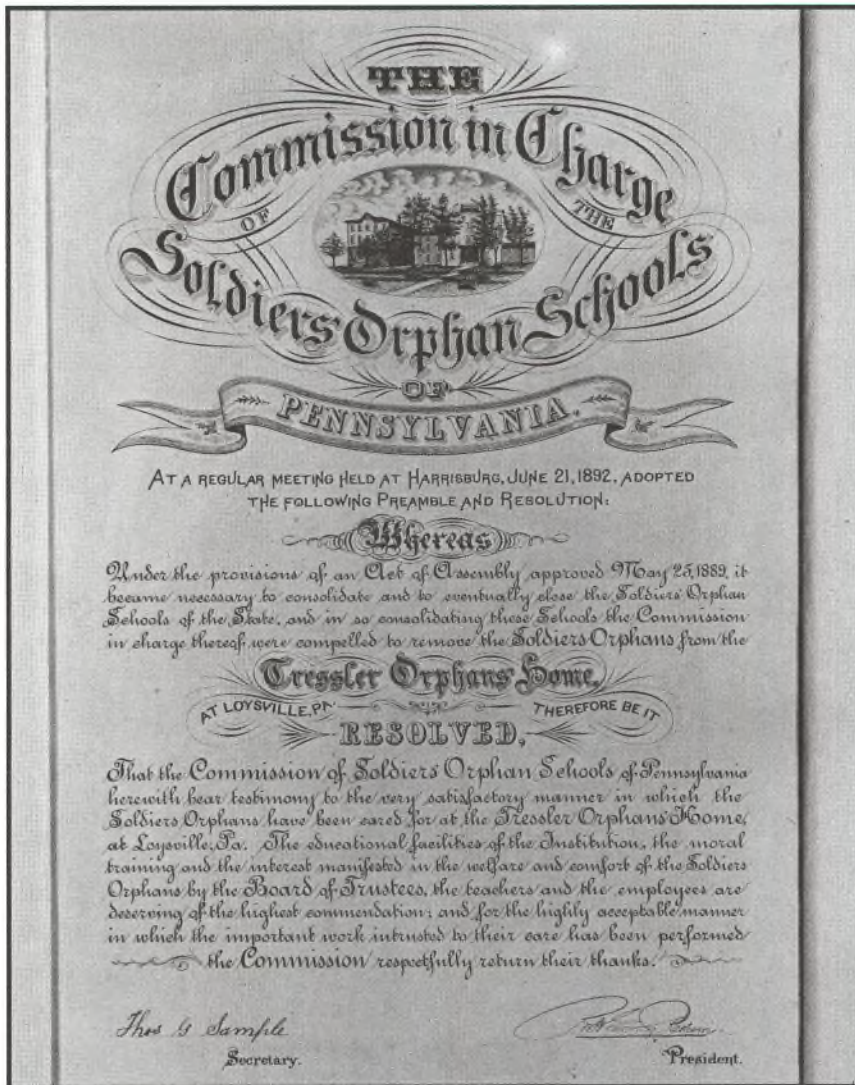 THE
Commission in Charge
OF THE
Soldiers Orphan Schools
OF
PENNSYLVANIA.
AT A REGULAR MEETING HELD AT HARRISBURG, JUNE 21, 1892, ADOPTED
THE FOLLOWING PREAMBLE AND RESOLUTION:
Whereas
Under the provisions of an Act of Assembly approved May 25, 1889, it
became necessary to consolidate and to eventually close the Soldiers' Orphan
Schools of the State, and in so consolidating these Schools the Commission
in charge thereof were compelled to remove the Soldiers Orphans from the
Tressler Orphans' Home,
AT LOYSVILLE, PA. THEREFORE BE IT
RESOLVED,
That the Commission of Soldiers' Orphan Schools of Pennsylvania
herewith bear testimony to the very satisfactory manner in which the
Soldiers Orphans have been cared for at the Tressler Orphans' Home,
at Loysville, Pa. The educational facilities of the Institution, the moral
training and the interest manifested in the welfare and comfort of the Soldiers
Orphans by the Board of Trustees, the teachers and the employees are
deserving of the highest commendation; and for the highly acceptable manner
in which the important work intrusted to their care has been performed
the Commission respectfully return their thanks.
Thos G Sample
Secretary. President.